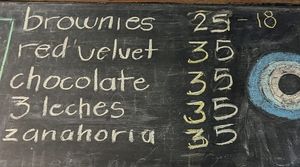 brownies 25 - 18
red velvet 35
chocolate 35
3 leches 35
zanahoria 35